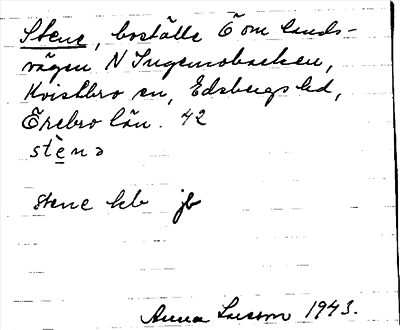 Stene, boställe Ö om lands-
vägen N Ingemobacken,
Kvistbro sn, Edsbergs hd,
Örebro län. 42
stènə
Stene kb jb
Anna Larsson 1943.